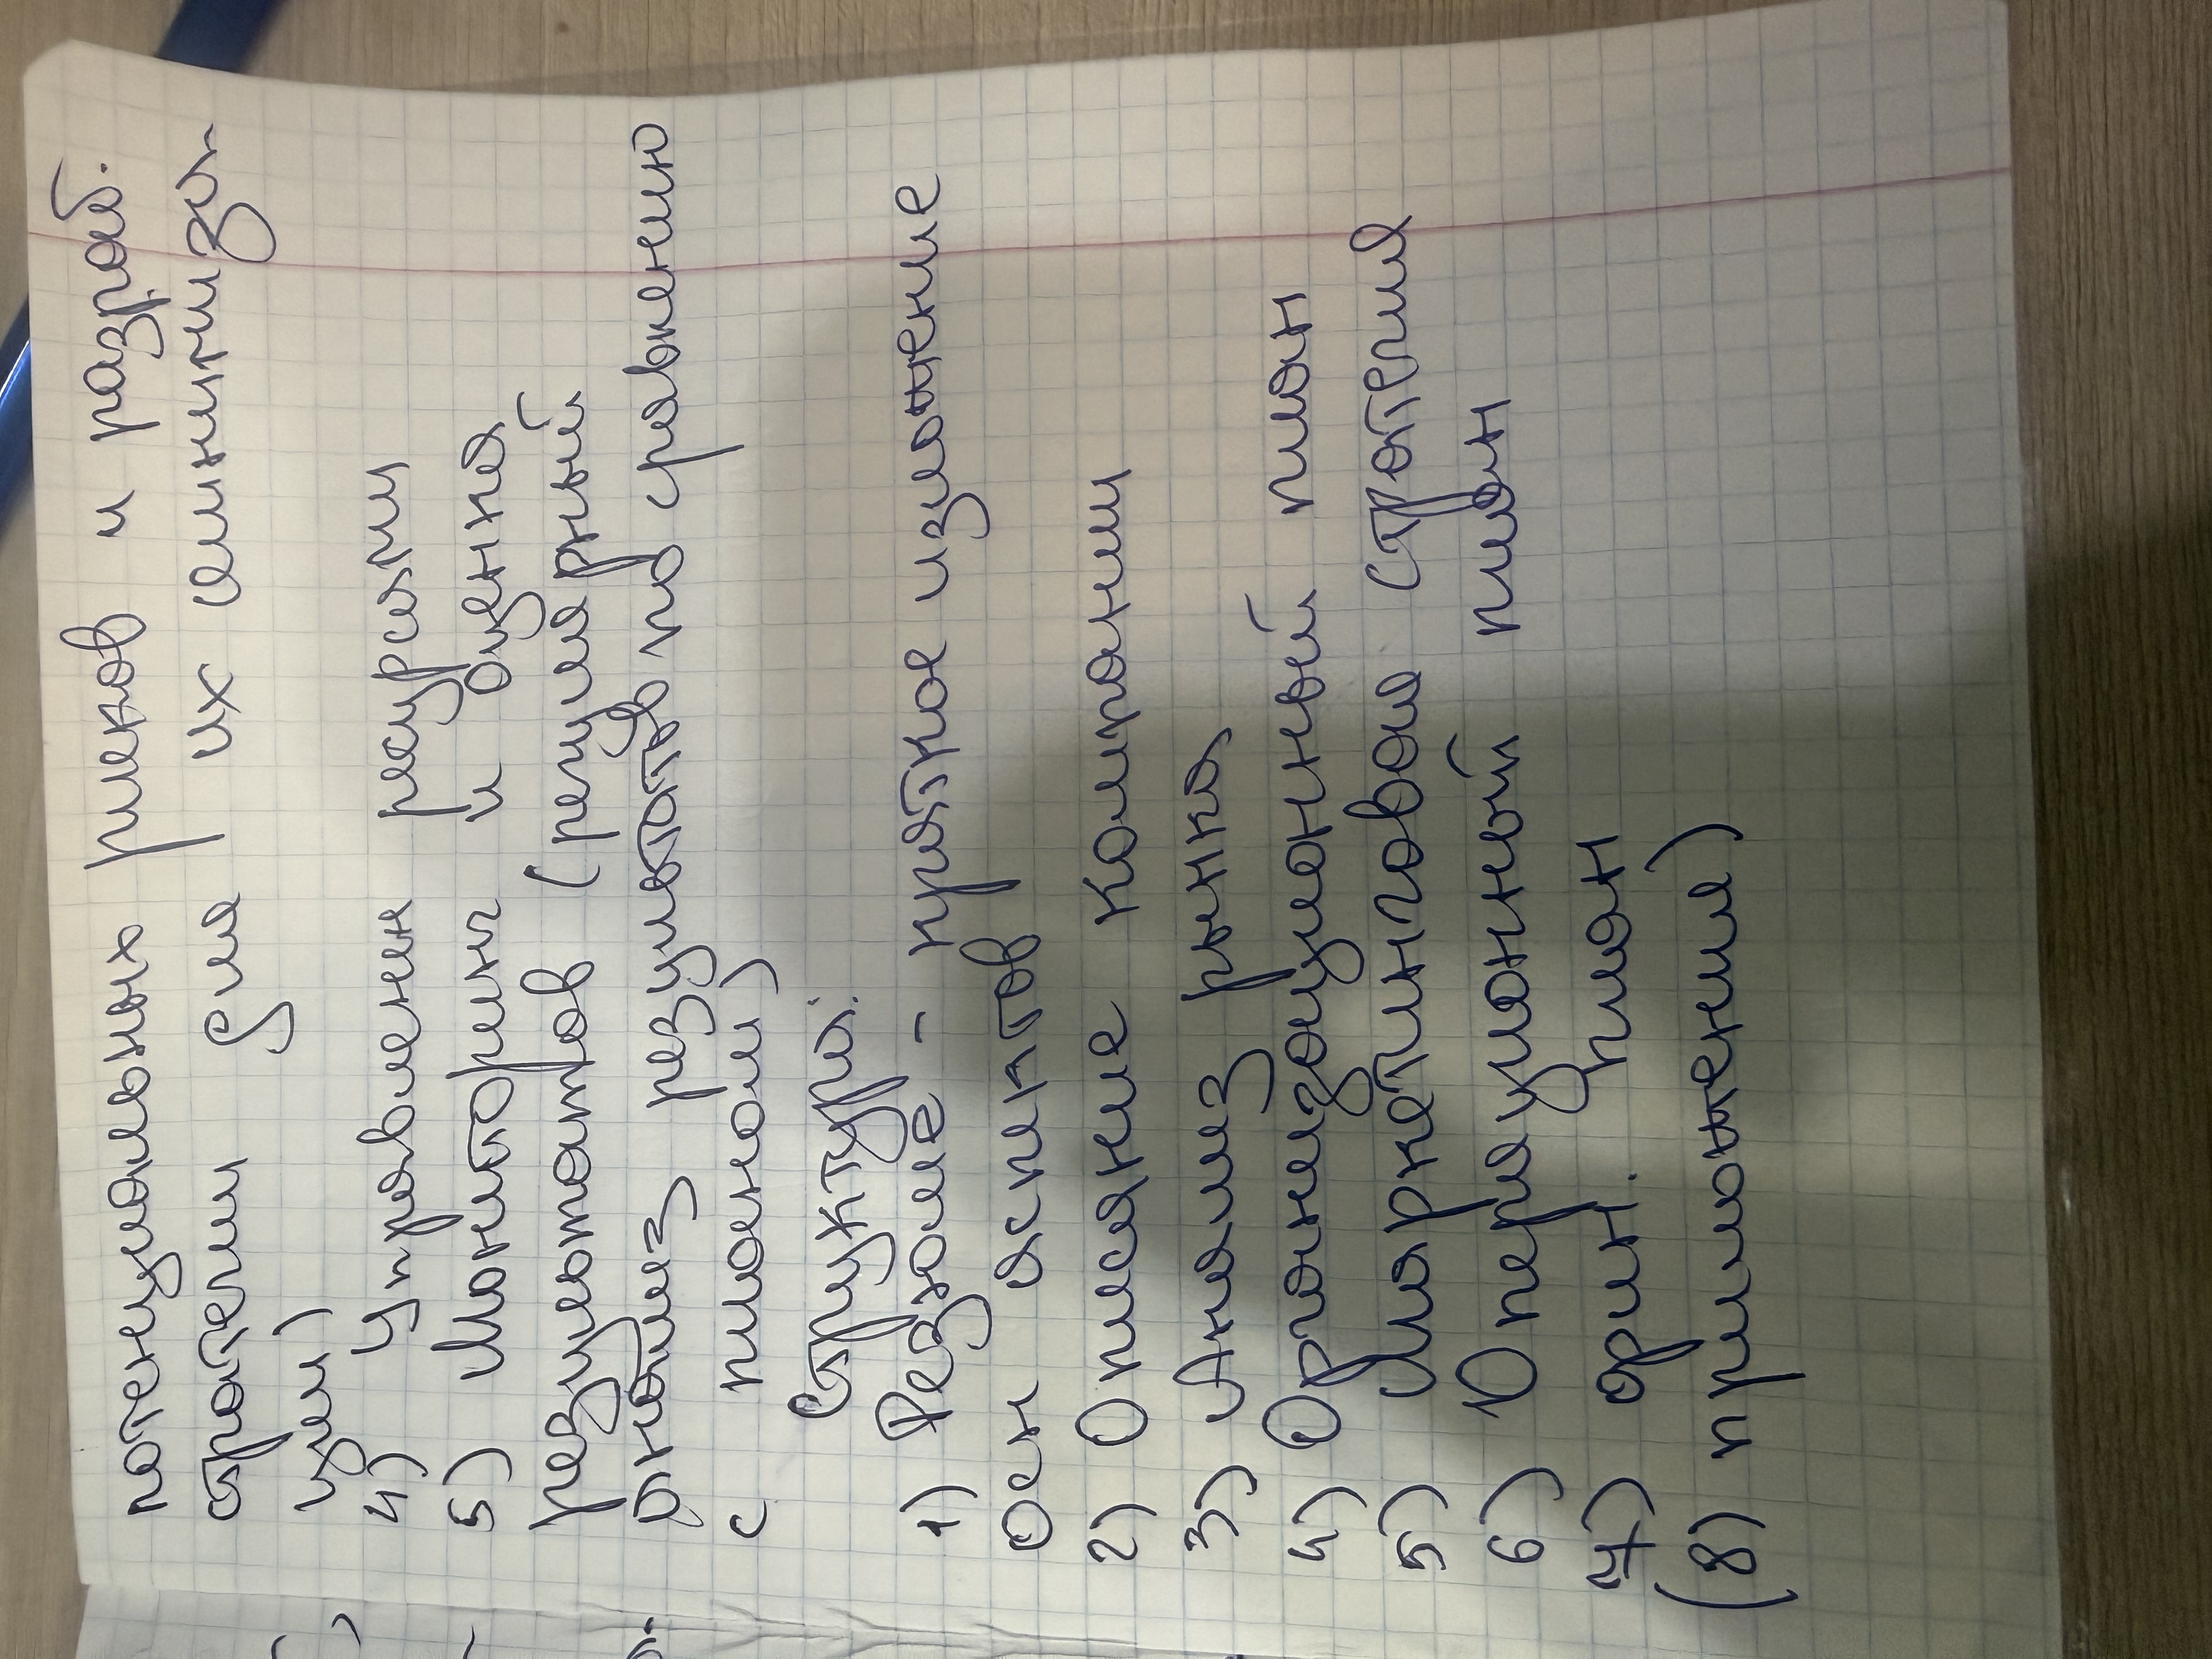 потенциальных рисков и разраб.
стратегии для их минимиза
ции)
4) управлен ресурсами
5) Мониторинг и оценка
результатов (регулярный
анализ результатов по сравнению
с планом)
Структура:
1) Резюме - краткое изложение
осн аспктов
2) Описание компании
3) Анализ рынка
4) Организационный план
5) Маркетинговая стратегия
6) Операционный план
7) фин. план
(8) приложение)